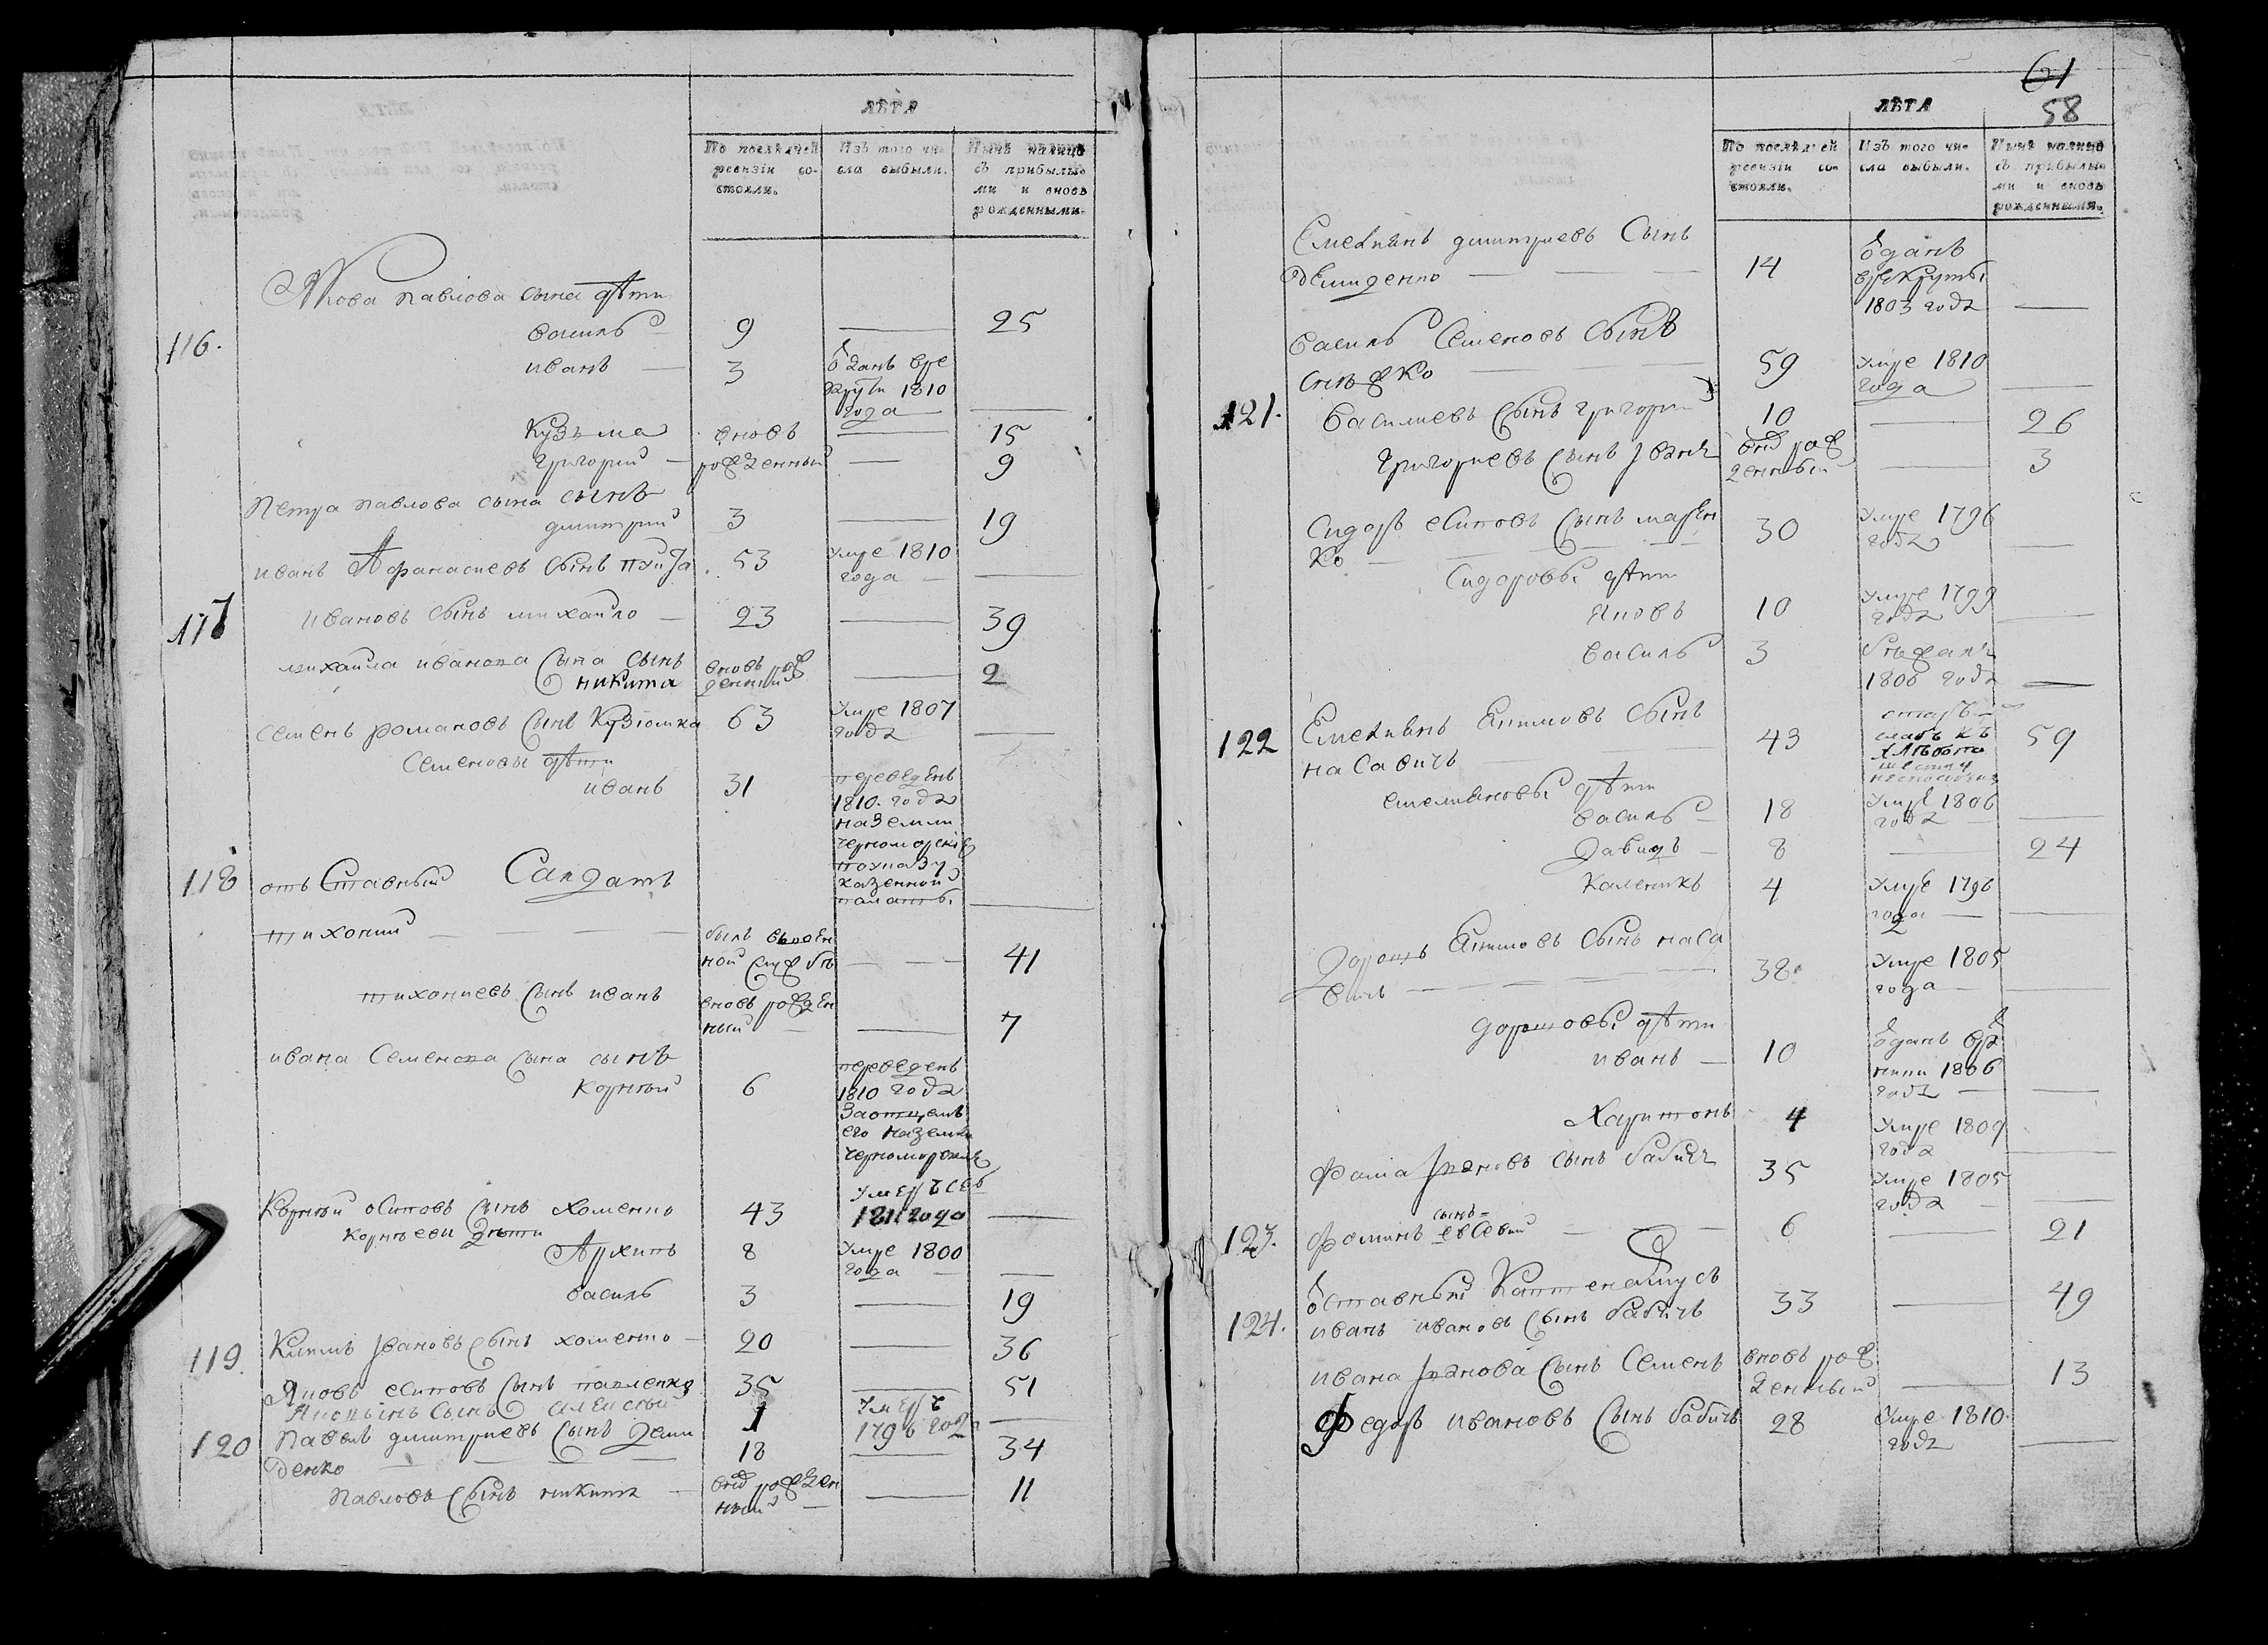 ЛѢТА
По послѣдней ревизіи со-
стояли.
Изъ того чи-
сла выбыли.
Нынѣ налицо
съ прибылы-
ми и вновь
рожденными.
Якова павлова сына дѣти
116.
василь 9 — 25
иванъ — 3 отданъ вре
круты 1810
года —
Кузьма вновь — 15
григорий — рожденный — 9
Петра павлова сына сынъ
дмитрий 3 — 19
иванъ Афанасиевъ сынъ 53 умре 1810
года — —
117 ивановъ сынъ михайло — 23 — 39
михайла иванова сына сынъ вновь рож
никита денный — 2
семенъ романовъ сынъ Кузюмка 63 умре 1807
года —
Семеновы дѣти
иванъ 31 переведенъ
1810. года
на земли
черноморские
по указу
казенной
палаты. —
118 отъ Ставный Салдатъ
тихоний — — — былъ ввоен
ной службѣ — — 41
тихониевъ сынъ иванъ вновь рожден
ный — — 7
ивана Семенова сына сынъ
корний 6 переведенъ
1810 года
за отцемъ
его на земли
черноморские
Корний осиповъ сынъ хоменко 43 умеръ сев
1811 года —
корнѣеви дѣти
Архипъ 8 умре 1800
года — —
василь 3 — 19
119. Климъ Ивановъ сынъ хоменко — 20 — 36
Яковъ есиповъ сынъ павленко 35 — 51
сынъ алексей 1 умеръ
1796 года —
120 Павелъ дмитриевъ сынъ деми
денко — — — 18 — 34
Павловъ сынъ никита — внов рожден
ный — — 11
61
58
ЛѢТА
По послѣдней
ревизіи со-
стояли.
Изъ того чи-
сла выбыли.
Нынѣ налицо
съ прибылы-
ми и вновь
рожденными.
Емельянъ дмитриевъ Сынъ
демиденко — — 14 отданъ
врекруты
1803 года —
василь Семеновъ Сынъ
59 умре 1810
года —
121. василиевъ сынъ григорий 10 — 26
григориевъ сынъ Иванъ внов рож
денный — 3
Сидоръ есиповъ сынъ марен
ко — 30 умре 1796
года —
Сидоровы дѣти
Яковъ 10 умре 1799
года —
василь 3
1806 года —
122 Емельянъ Якимовъ сынъ
насавичъ 43 старъ
слабъ къ
хлѣбопа
шеству
59
емелияновы дѣти
василь — 18 умре 1806
года — —
давидъ — 8 — 24
каленикъ 4 умре 1796
года — —
Дорошъ Якимовъ сынъ наса
вичъ — — — 38. умре 1805
года — —
дорошовы дѣти
иванъ — 10 отданъ вре
1806
года — —
Харитонъ 4 умре 1809
года —
Фома Ивановъ сынъ бабичъ 35 умре 1805
года —
123. Фоминъ сынъ евсевий — — 6 — 21
отставный Каптенармусъ
124. иванъ ивановъ сынъ бабичъ 33 — 49
ивана Иванова сынъ Семенъ вновь рож
денный — 13
Федоръ ивановъ сынъ бабичъ 28 умре 1810.
года —